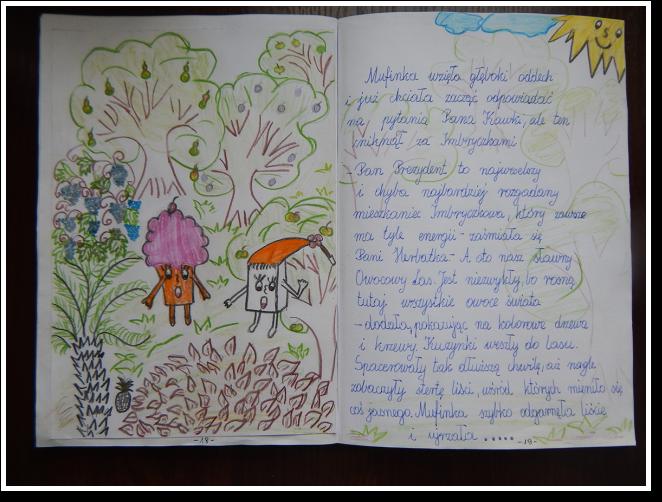 Mufinka wzięła głęboki oddech
i już chciała zacząć odpowiadać
na pytania Pana Kawki, ale ten
zniknął za Imbryczkami.
- Pan Prezydent to najweselszy
i chyba najbardziej rozgadany
mieszkaniec Imbryczkowa, który zawsze
ma tyle energii - zaśmiała się
Pani Herbatka - A oto nasz sławny
Owocowy Las. Jest niezwykły, bo rosną
tutaj wszystkie owoce świata
- dodała, pokazując na kolorowe drzewa
i krzewy. Kuzynki weszły do lasu.
Spacerowały tak dłuższą chwilę, aż nagle
zobaczyły stertę liści, wśród których mieniło się
coś jasnego. Mufinka szybko odgarnęła liście
i ujrzała .....
-18-
-19-